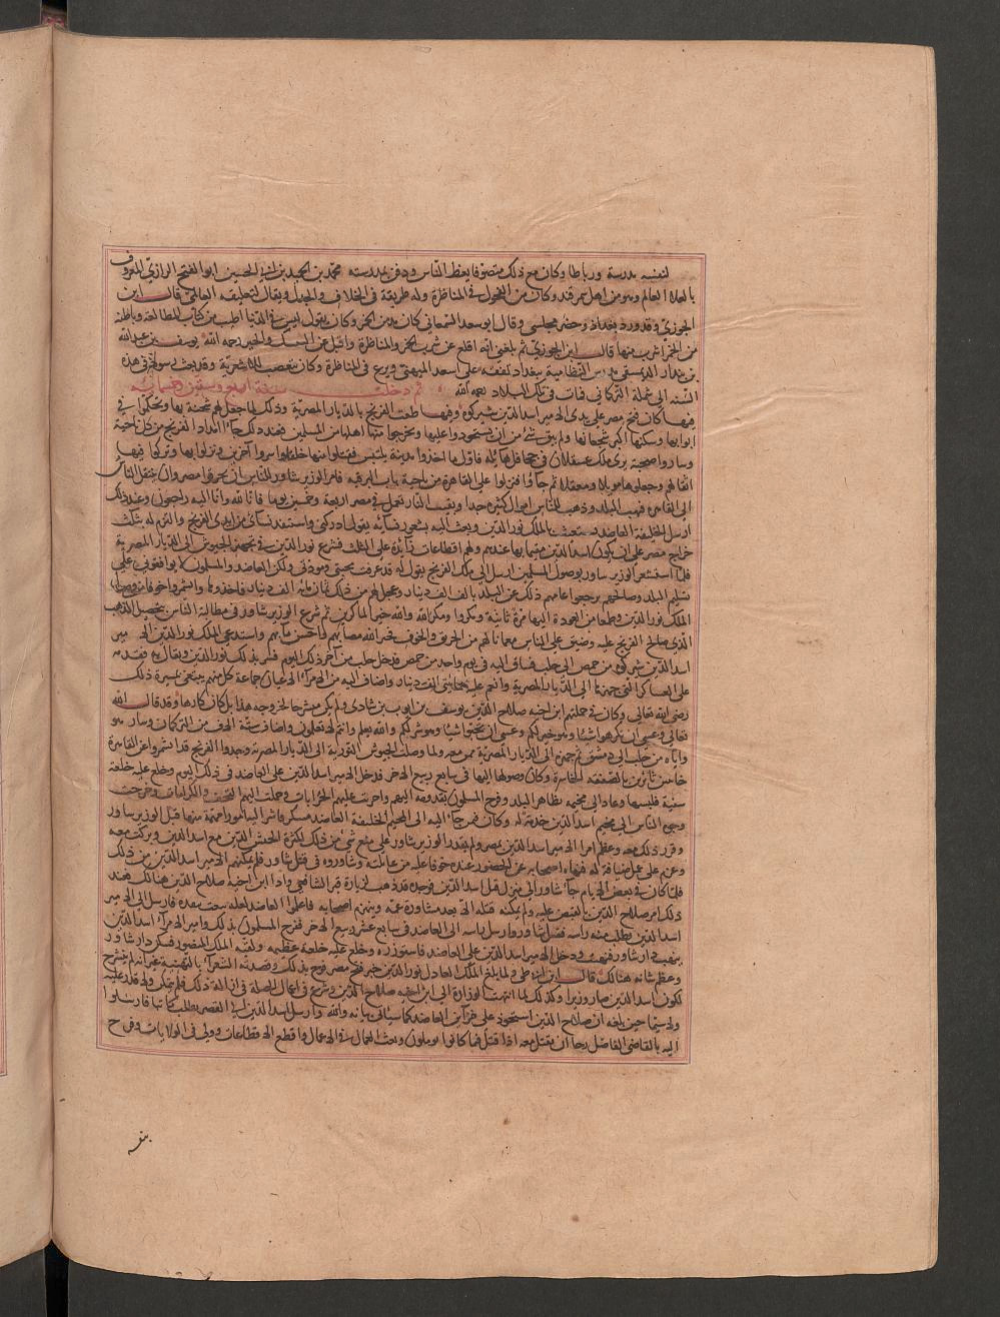 لنفسه مدرسة ورباطا وكان مع ذلك متصوفا يعظ الناس ودفن بمدرسته محمد بن عبد الحميد بن ابي الحسين ابو الفتح الرازي المعروف
بالعلاء العالم وهو من اهل سمرقند وكان من الفحول في المناظرة وله طريقة في الخلاف والجدل ويقال لتعليقه العالمي قال ابن
الجوزي وقد ورد بغداد وحضر مجلسي وقال ابو سعد السمعاني كان يدمن الخمر وكان يقول ليس في الدنيا اطيب من كتاب للمطالعة وباطية
من الخمر اشرب منها قال ابن الجوزي ثم بلغني انه اقلع عن شرب الخمر والمناظرة واقبل على النسك والخير رحمه الله يوسف بن عبد الله
بن بندار الدمشقي مدرس النظامية ببغداد تفقه على اسعد الميهني وبرع في المناظرة وكان يتعصب للاشعرية وقد بعث رسولا في هذه
السنة الى شملة التركماني فمات في تلك البلاد رحمه الله ثم دخلت سنة اربع وستين وخمسمائة
فيها كان فتح مصر على يدي الامير اسد الدين شيركوه وفيها طغت الفرنج بالديار المصرية وذلك لما جعل لهم شحنة بها وتحكموا في
ابوابها وسكنها اكثر شجعانها ولم يبق شئ من ان يستحوذوا عليها ويخرجوا منها اهلها من المسلمين فعند ذلك جاء امداد الفرنج من كل ناحية
وساروا صحبة مري ملك عسقلان في جحافل هائلة فاول ما اخذوا مدينة بلبيس فقتلوا منها خلقا واسروا آخرين ونزلوا بها وتركوا فيها
اثقالهم وجعلوها موئلا ومعقلا ثم جاؤا فنزلوا على القاهرة من ناحية باب البرقية فامر الوزير شاور للناس ان يحرقوا مصر وان ينتقل الناس
الى القاهرة فنهب البلد وذهب للناس اموال كثيرة جدا وبقيت النار تعمل في مصر اربعة وخمسين يوما فانا لله وانا اليه راجعون وعند ذلك
ارسل الخليفة العاضد يستغيث بالملك نور الدين وبعث اليه بشعور نسائه يقول ادركني واستنقذ نسائي من ايدي الفرنج والتزم له بثلث
خراج مصر على ان يكون اسد الدين مقيما بها عندهم ولهم اقطاعات زائدة على الثلث فشرع نور الدين في تجهيز الجيوش الى الديار المصرية
فلما استشعر الوزير شاور بوصول المسلمين ارسل الى ملك الفرنج يقول له قد عرفت محبتي ومودتي ولكن العاضد والمسلمون لا يوافقوني على
تسليم البلد وصالحهم يرجعوا عامهم ذلك عن البلد بالف الف دينار وعجل لهم من ذلك ثمان مائة الف دينار فاخذوها وانشمروا خوفا من
الملك نور الدين وطمعا من العودة اليها مرة ثانية ومكروا ومكر الله والله خير الماكرين ثم شرع الوزير شاور في مطالبة الناس بتحصيل الذهب
الذي صالح الفرنج عليه وضيق على الناس مع ما نالهم من الحريق والخوف فجبر الله مصابهم واحسن مآبهم واستدعى الملك نور الدين الامير
اسد الدين شيركوه من حمص الى حلب فساق اليه في يوم واحد من حمص فدخل حلب من آخر ذلك اليوم فسر بذلك نور الدين ويقال به فقدمه
على العساكر التي جهزها الى الديار المصرية وانعم عليه بمائتي الف دينار واضاف اليه من الامراء الاعيان جماعة كل منهم يبتغي بمسيره ذلك
رضى الله تعالى وكان في جملتهم ابن اخيه صلاح الدين يوسف بن ايوب بن شادي ولم يكن منشرحا لخروجه هذا بل كان كارها وقد قال الله
تعالى وعسى ان تكرهوا شيئا وهو خير لكم وعسى ان تحبوا شيئا وهو شر لكم والله يعلم وانتم لا تعلمون واضاف ستة الاف من التركمان وسار هو
واياه من حلب الى دمشق ثم جهزهم الى الديار المصرية ممن معه ولما وصلت الجيوش النورية الى الديار المصرية وجدوا الفرنج قد انشمروا عن القاهرة
خائبين بالصفقة الخاسرة وكان وصولها اليها في سابع ربيع الاخر فدخل الامير اسد الدين على العاضد في ذلك اليوم وخلع عليه خلعة
سنية فلبسها وعاد الى مخيمه بظاهر البلد وفرح المسلمون بقدومه اليهم واجريت عليهم الجرايات وحملت اليهم التحف والكرامات وخرجت
وجوه الناس الى مخيم اسد الدين خدمة له وكان فيمن جاء اليه الى المخيم الخليفة العاضد متنكرا فاسر اليه امورا مهمة منها قتل الوزير شاور
وقرر ذلك معه وعظم امر الامير اسد الدين بمصر ولم يقدر الوزير شاور على منع شئ من ذلك لكثرة الجيش الذين مع اسد الدين وبركب معه
وعزم على عمل ضيافة له فنهاه اصحابه عن الحضور عنده خوفا عليه من غائلته وشاوروه في قتل شاور فلم يمكنهم الامير اسد الدين من ذلك
فلما كان في بعض الايام جاء شاور الى منزل اسد الدين فوجده قد ذهب لزيارة قبر الشافعي واذا ابن اخيه صلاح الدين هنالك فعند
ذلك امر صلاح الدين بالقبض عليه ولم يمكنه قتله الا بعد مشاورة عمه وينهزم اصحابه فاعلموا العاضد لعله يبعث ينقذه فارسل الى الامير
اسد الدين يطلب منه راسه فقتل شاور وارسل راسه الى العاضد في سابع عشر ربيع الاخر ففرح المسلمون بذلك وامر الامير اسد الدين
بنهب دار شاور فنهبت ودخل الامير اسد الدين على العاضد فاستوزره وخلع عليه خلعة عظيمة ولقبه الملك المنصور فسكن دار شاور
وعظم شانه هنالك قال ابن ابي طي ولما بلغ الملك العادل نور الدين خبر فتح مصر فرح بذلك وقصدته الشعراء بالتهنية غير انه لم ينشرح
لكون اسد الدين صار وزيرا وكذلك لما انتهت الوزارة الى ابن اخيه صلاح الدين وشرع في اعمال الحيلة في ازالة ذلك فلم يتمكن ولا قدر عليه
ولا سيما حين بلغه ان صلاح الدين استحوذ على خزائن العاضد كما سياتي بيانه والله وارسل اسد الدين الى القصر يطلب كاتبا فارسلوا
اليه بالقاضي الفاضل رجا ان يقتل معه اذا قتل فيما كانوا يؤملون وبعث العمال في الاعمال واقطع الاقطاعات وولي في الولايات وفرح
بنفسه